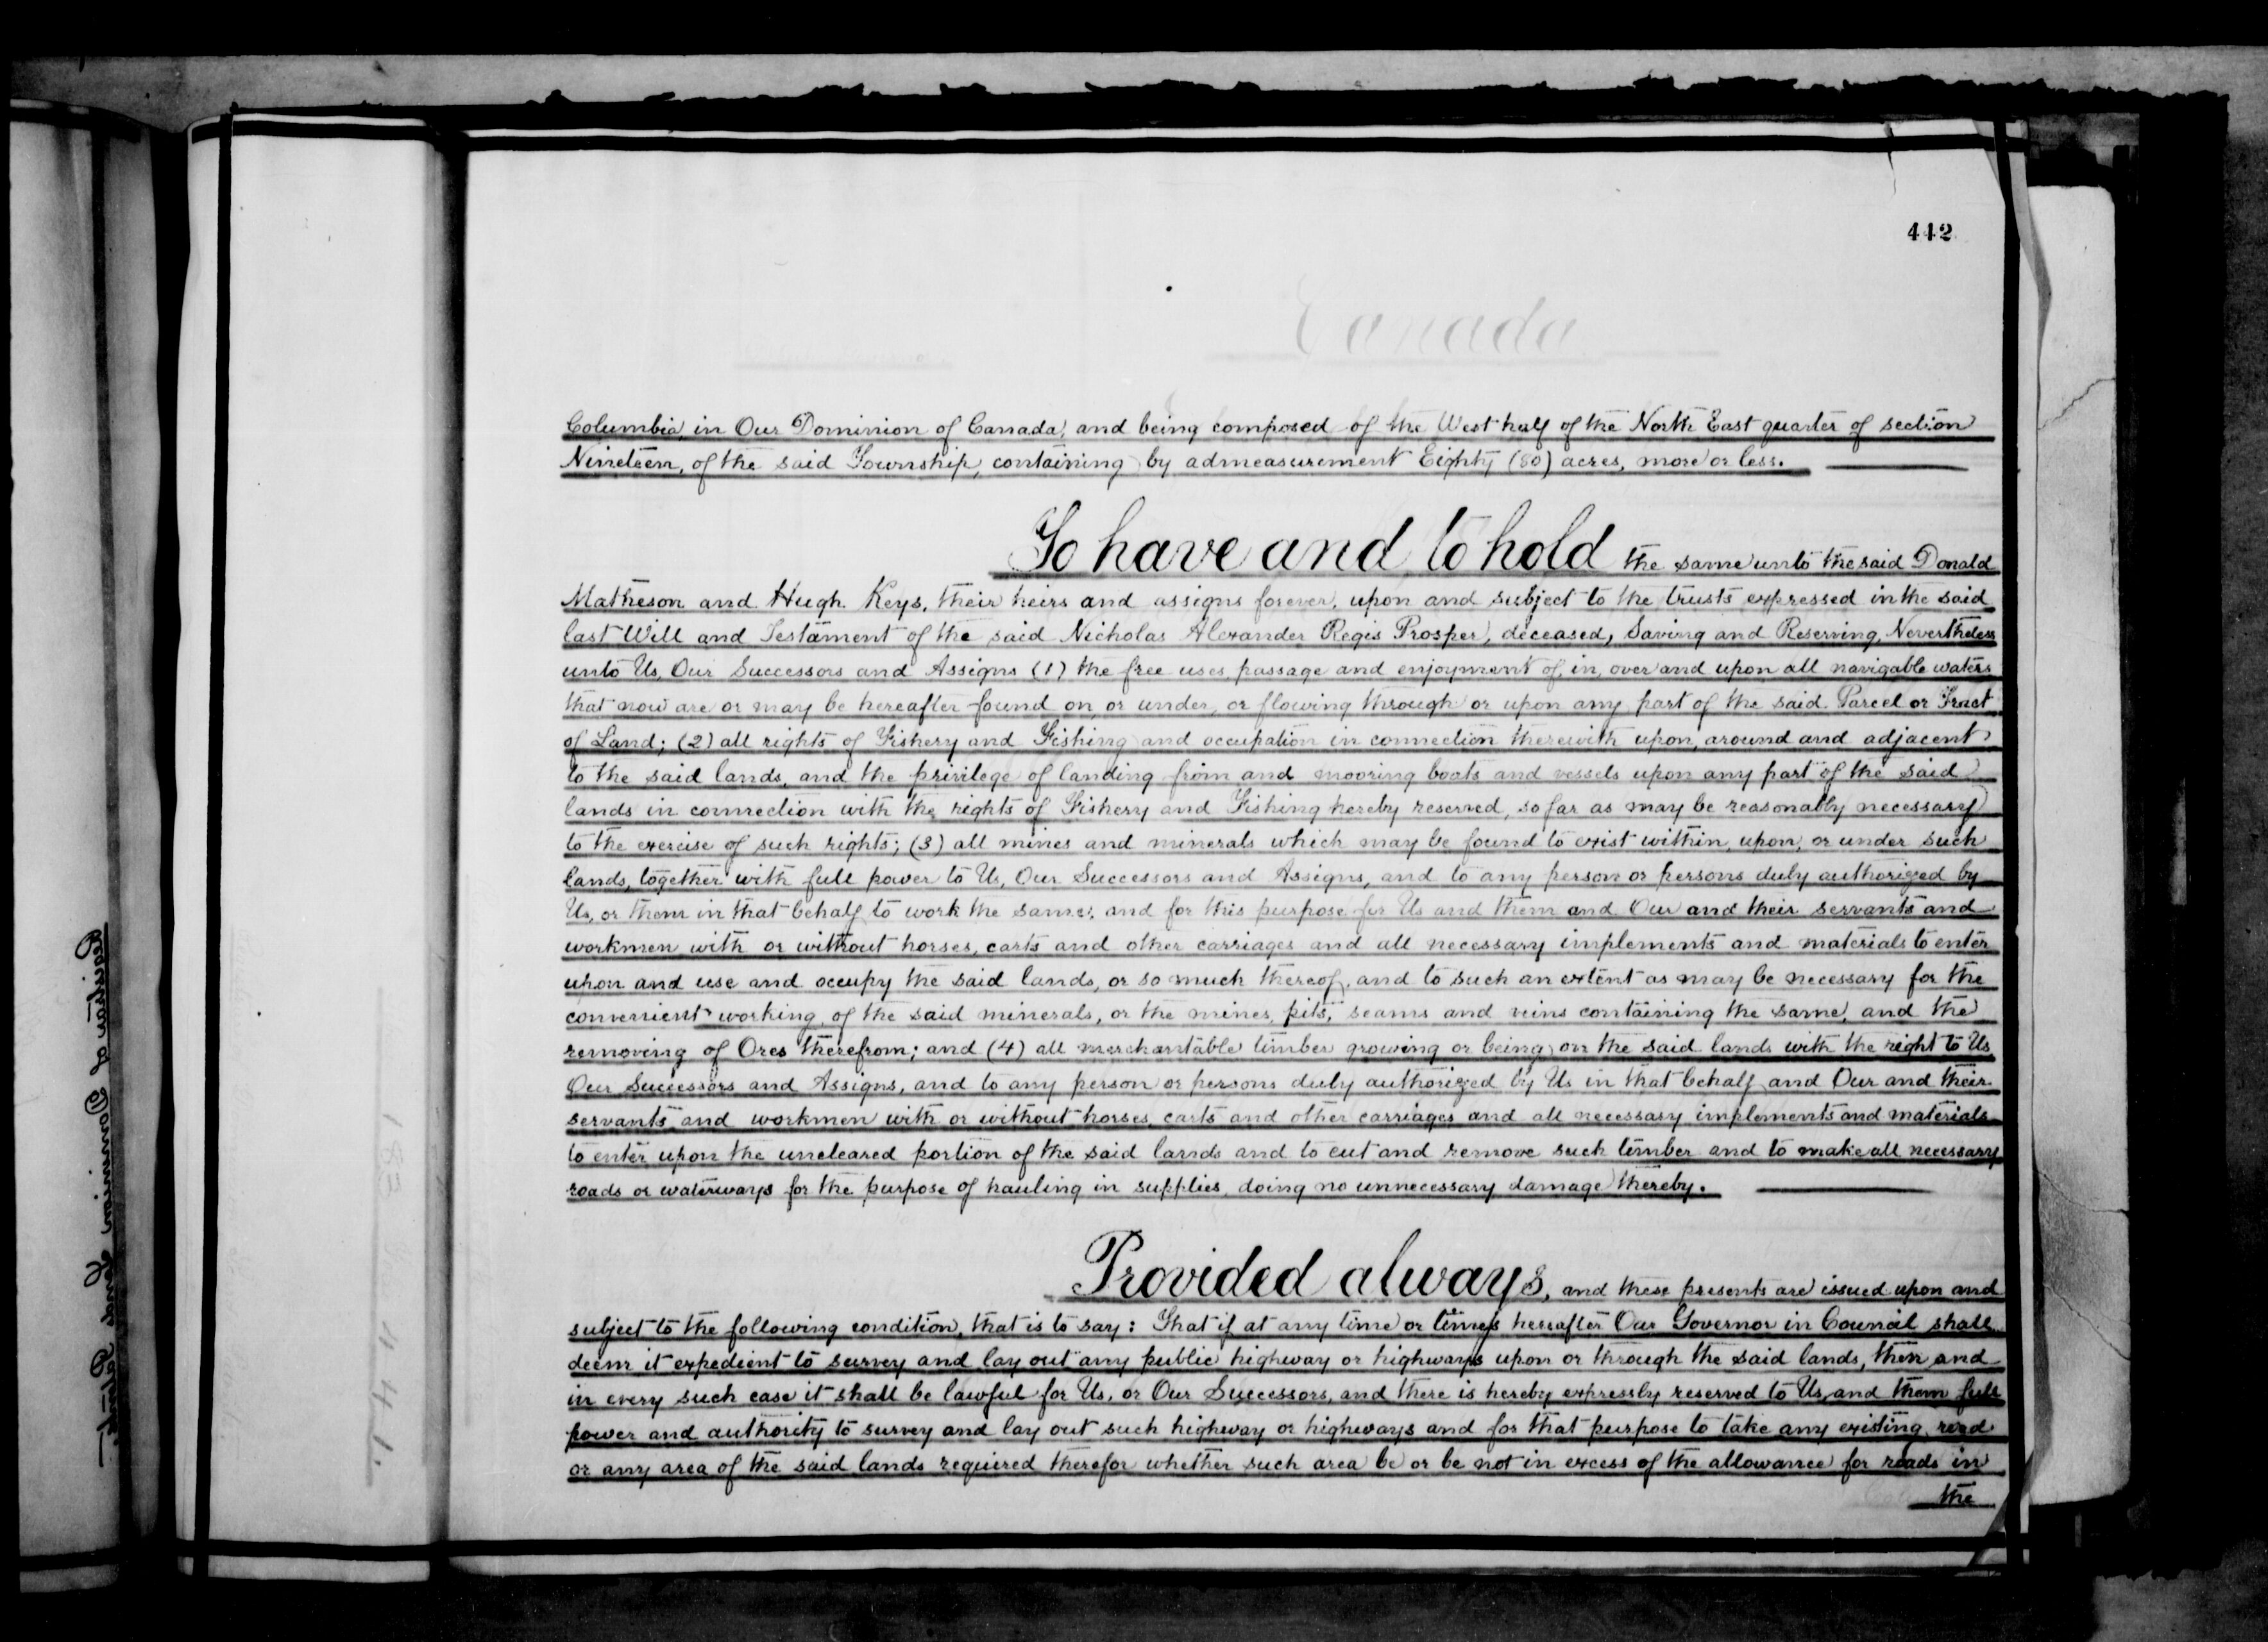 442
Canada
Columbia, in Our Dominion of Canada, and being composed of the West half of the North East quarter of section
Nineteen, of the said Township, containing by admeasurement Eighty (80) acres, more or less.
To have and to hold the same unto the said Donald
Matheson and Hugh Keys, their heirs and assigns forever, upon and subject to the trusts expressed in the said
last Will and Testament of the said Nicholas Alexander Regis Prosper, deceased, Saving and Reserving, Nevertheless
unto Us, Our Successors and Assigns (1) the free uses, passage and enjoyment of, in, over and upon all navigable waters
that now are or may be hereafter found on, or under, or flowing through or upon any part of the said Parcel or Tract
of Land; (2) all rights of Fishery and Fishing and occupation in connection therewith upon, around and adjacent
to the said lands, and the privilege of landing from and mooring boats and vessels upon any part of the said
lands in connection with the rights of Fishery and Fishing hereby reserved, so far as may be reasonably necessary
to the exercise of such rights; (3) all mines and minerals which may be found to exist within, upon, or under such
lands, together with full power to Us, Our Successors and Assigns, and to any person or persons duly authorized by
Us, or them in that behalf, to work the same, and for this purpose for Us and them and Our and their servants and
workmen with or without horses, carts and other carriages and all necessary implements and materials to enter
upon and use and occupy the said lands, or so much thereof, and to such an extent as may be necessary for the
convenient working of the said minerals, or the mines, pits, seams and veins containing the same, and the
removing of Ores therefrom; and (4) all merchantable timber growing or being on the said lands with the right to Us
Our Successors and Assigns, and to any person or persons duly authorized by Us in that behalf and Our and their
servants and workmen with or without horses, carts and other carriages and all necessary implements and materials
to enter upon the uncleared portion of the said lands and to cut and remove such timber and to make all necessary
roads or waterways for the purpose of hauling in supplies, doing no unnecessary damage thereby.
Provided always, and these presents are issued upon and
subject to the following condition, that is to say: That if at any time or times hereafter Our Governor in Council shall
deem it expedient to survey and lay out any public highway or highways upon or through the said lands, then and
in every such case it shall be lawful for Us, or Our Successors, and there is hereby expressly reserved to Us, and them full
power and authority to survey and lay out such highway or highways and for that purpose to take any existing road
or any area of the said lands required therefor whether such area be or be not in excess of the allowance for roads in
the